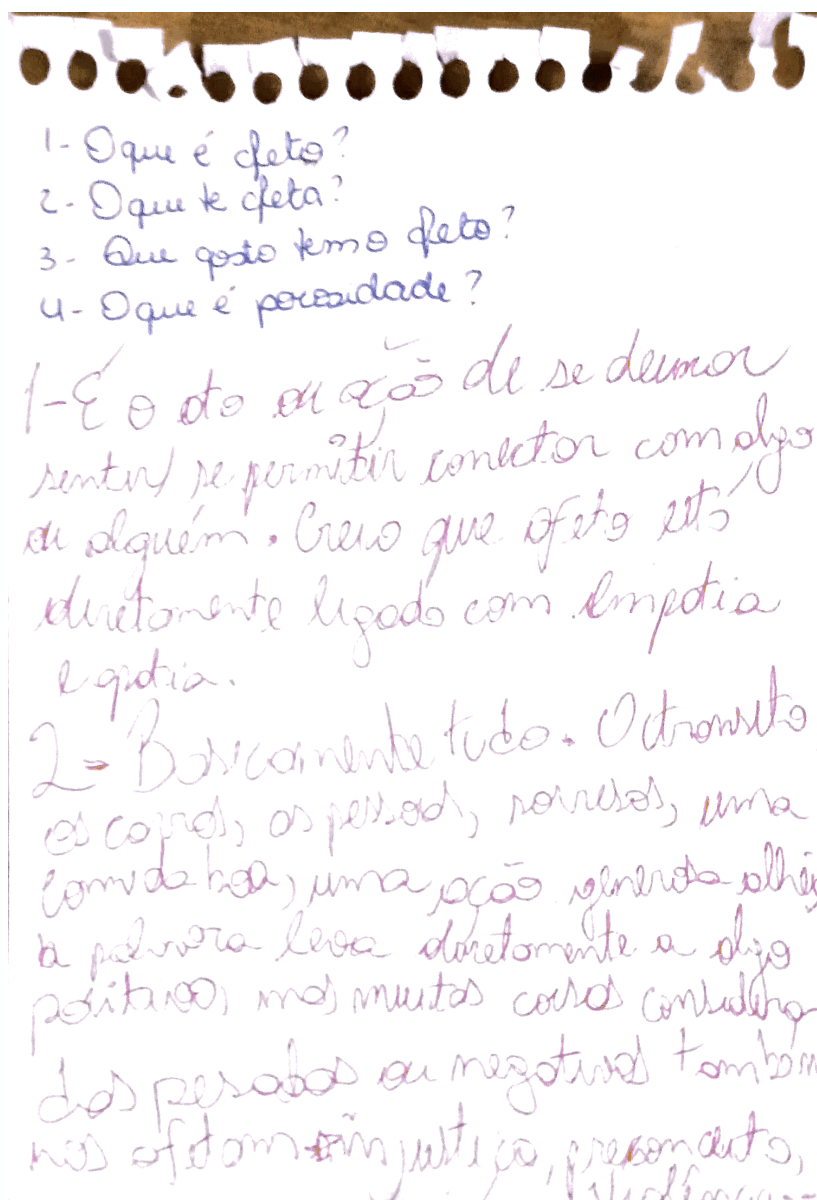 1- O que é afeto?
2- O que te afeta?
3- Que gosto tem o afeto?
4- O que é porosidade?
1- É o ato ou ação de se deixar
sentir/se permitir conectar com algo
ou alguém. Creio que afeto está
diretamente ligado com empatia
e apatia.
2- Basicamente tudo. O transito
os copros, as pessoas, sorrisos, uma
comida boa, uma ação generosa alhei
a palavra leva diretamente a algo
positivo, mas muitas coisas considera
das pesadas ou negativas também
nos afetam injustiça, preconceito,
violência